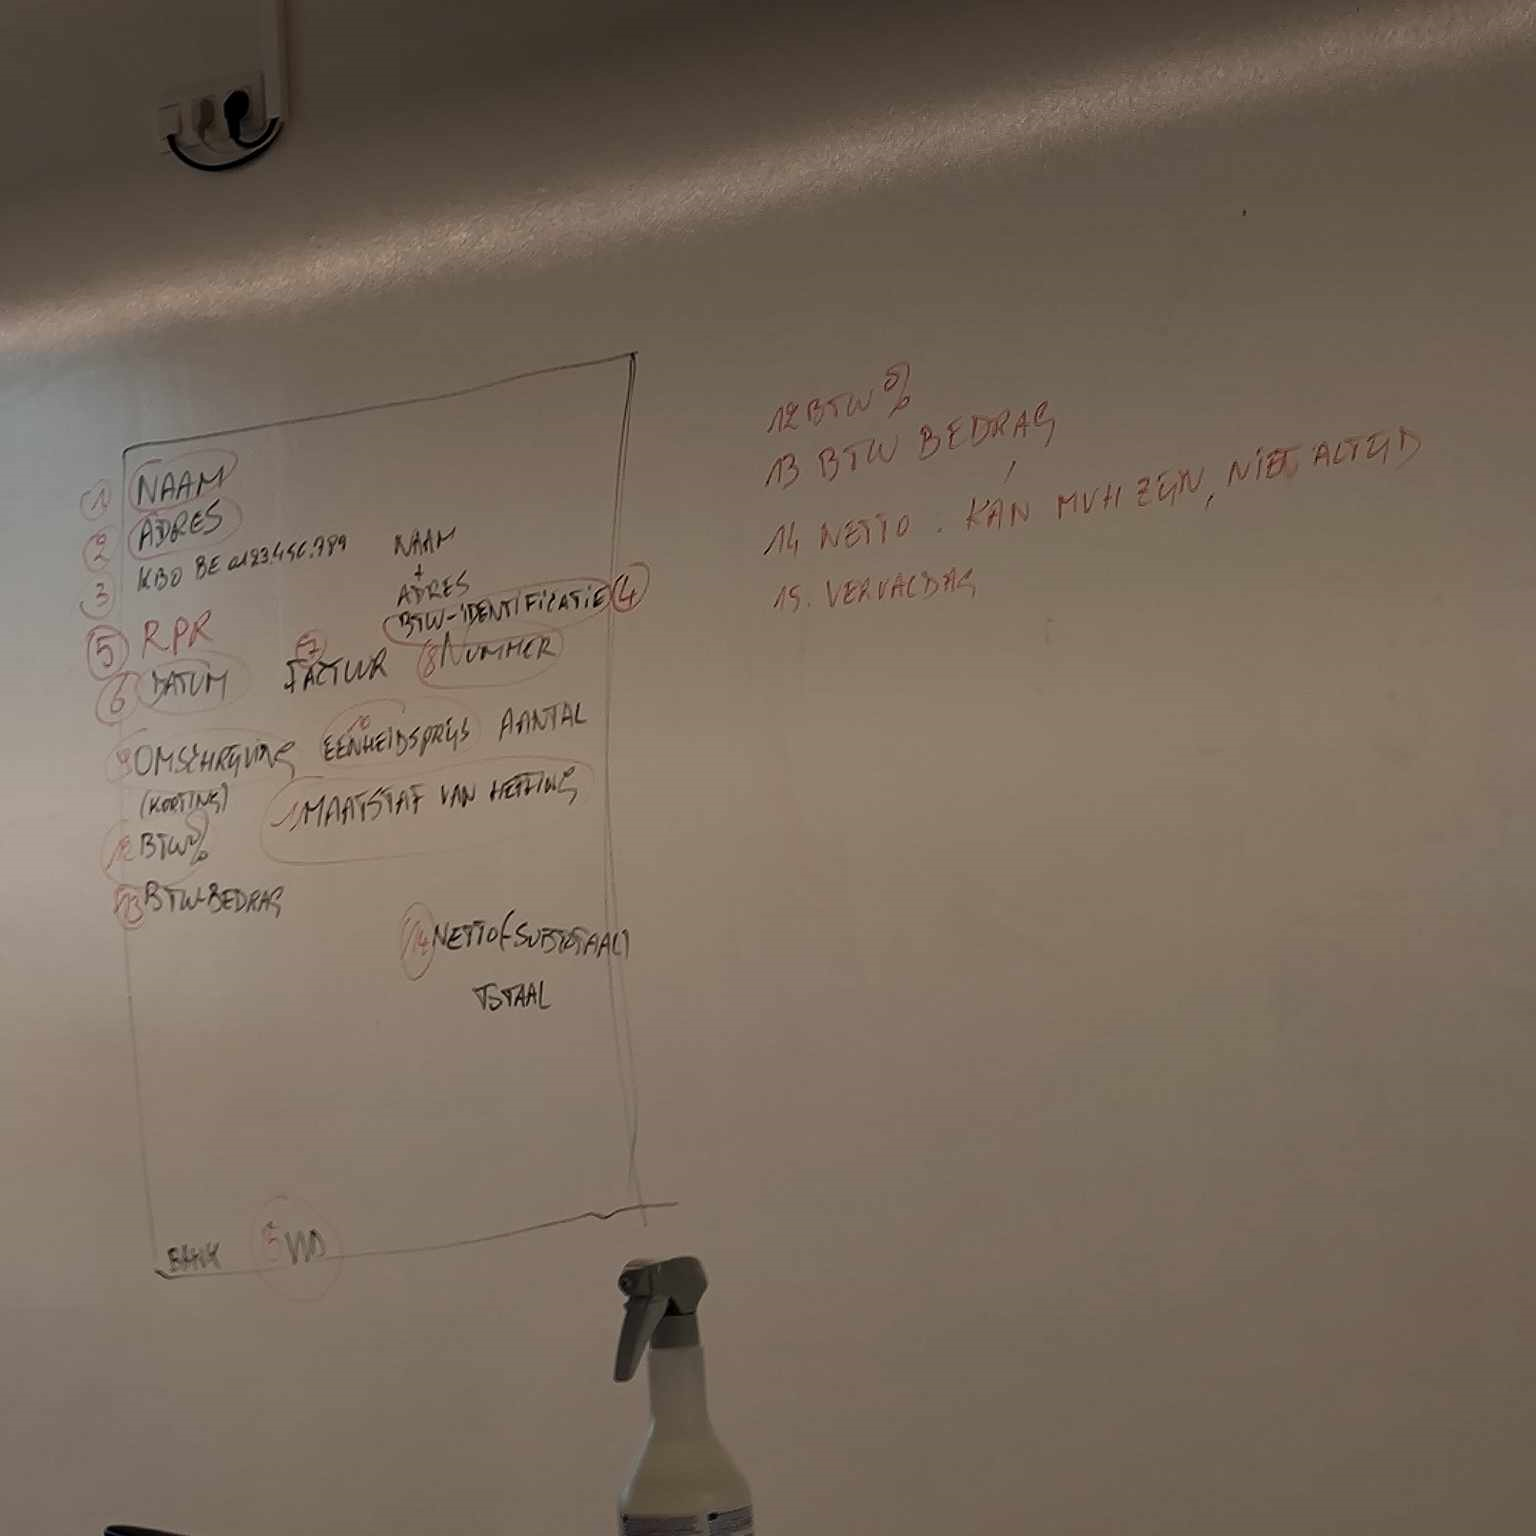 1 NAAM
2 ADRES
3 KBO BE 0123.456.789
NAAM
+
ADRES
BTW-IDENTIFICATIE 4
5 RPR
6 DATUM 7 FACTUUR 8 NUMMER
9 OMSCHRIJVING 10 EENHEIDSPRIJS AANTAL
(KORTING) 11 MAATSTAF VAN HEFFING
12 BTW%
13 BTW-BEDRAG
14 NETTO (-SUBTOTAAL)
TOTAAL
BANK
12 BTW %
13 BTW BEDRAG
14 NETTO : KAN MVH ZIJN, NIET ALTIJD
15. VERVALDAG